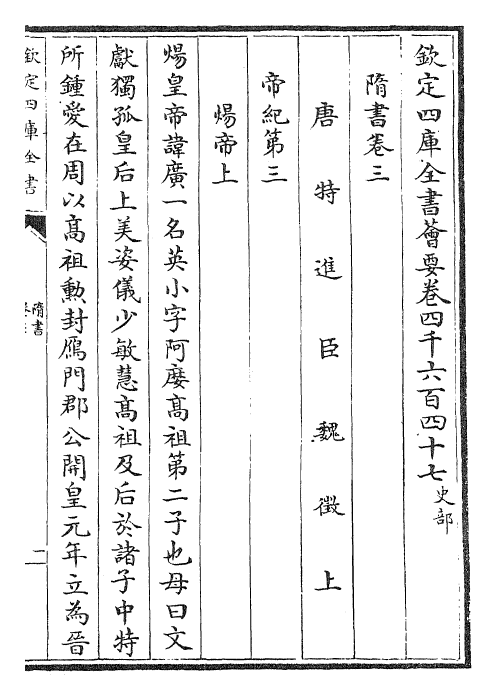 欽定四庫全書薈要卷四千六百四十七史部
隋書卷三
唐特進臣魏徵上
帝紀第三
煬帝上
煬皇帝諱廣一名英小字阿㦄高祖第二子也母曰文
獻獨孤皇后上美姿儀少敏慧髙祖及后於諸子中特
所鍾愛在周以髙祖勲封鴈門郡公開皇元年立為晉
欽定四庫全書
隋書
二